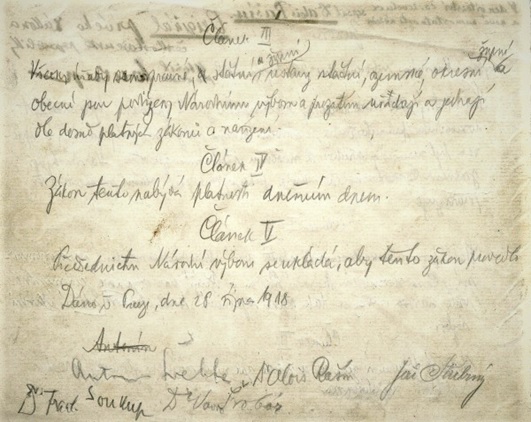 Článek III
a župní župní
úřady samosprávné, a státní ústavy státní, zemské okresní a
obecní jsou podřízeny Národnímu výboru a prozatím úřadují a jednají
dle dosud platných zákonů a nařízení.
Článek IV
Zákon tento nabývá platnosti dnešním dnem.
Článek V
Předsednictvu Národní výboru se ukládá, aby tento zákon provedlo
Dáno v Praze, dne 28 října 1918
Antonín
Antonín Švehla Dr Alois Rašín Jiří Stříbrný
Dr. Frant. Soukup Dr Vavro Šrobár